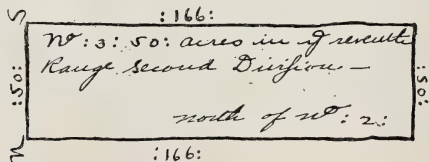 S
:166:
:50:
No: 3: 50: acres in ye seventh
Range second Division —
north of No: 2:
:50:
n
:166: